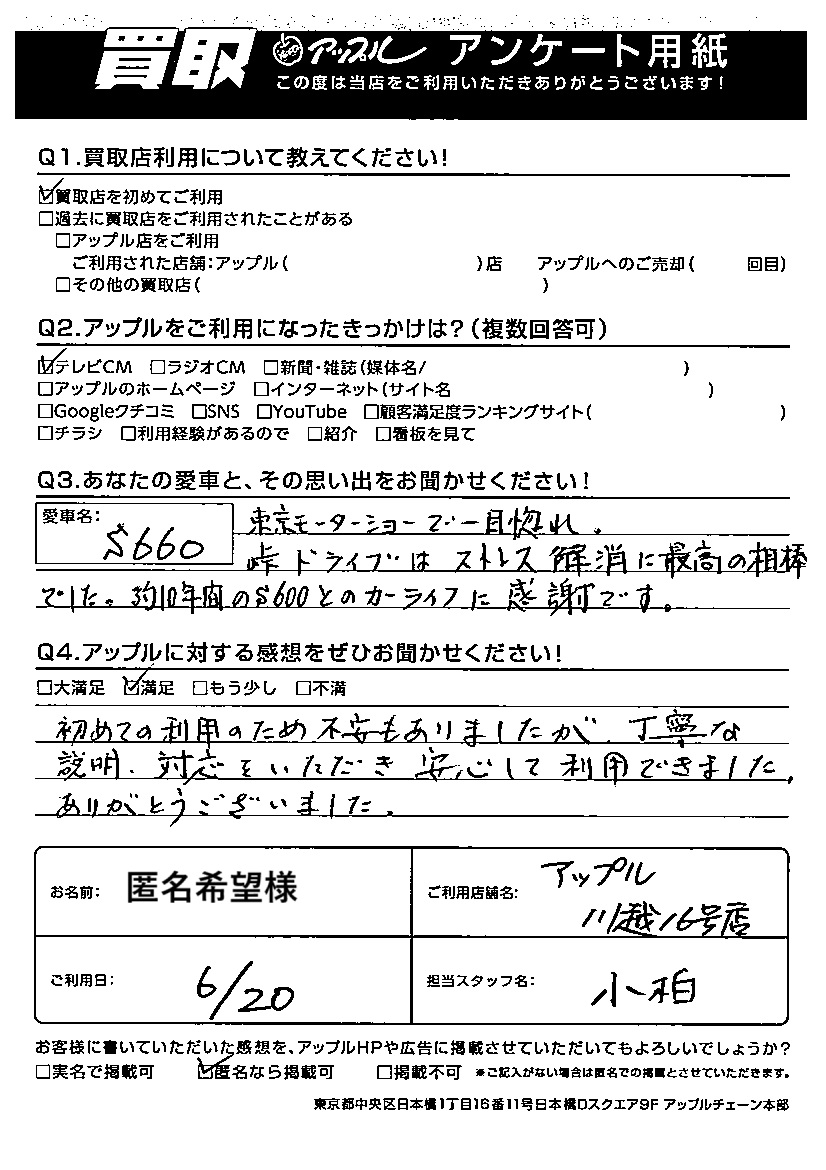 買取 アップル アンケート用紙
この度は当店をご利用いただきありがとうございます!
Q1.買取店利用について教えてください!
☑買取店を初めてご利用
□過去に買取店をご利用されたことがある
□アップル店をご利用
ご利用された店舗:アップル( )店 アップルへのご売却( 回目)
□その他の買取店( )
Q2.アップルをご利用になったきっかけは?(複数回答可)
☑テレビCM □ラジオCM □新聞・雑誌(媒体名/ )
□アップルのホームページ □インターネット(サイト名 )
□Googleクチコミ □SNS □YouTube □顧客満足度ランキングサイト( )
□チラシ □利用経験があるので □紹介 □看板を見て
Q3.あなたの愛車と、その思い出をお聞かせください!
愛車名: S660
東京モーターショーで一目惚れ。
峠ドライブはストレス解消に最高の相棒
でした。約10年間のS600とのカーライフに感謝です。
Q4.アップルに対する感想をぜひお聞かせください!
□大満足 ☑満足 □もう少し □不満
初めての利用のため不安もありましたが、丁寧な
説明、対応をいただき安心して利用できました。
ありがとうございました。
お名前: 匿名希望様
ご利用店舗名: アップル
川越16号店
ご利用日: 6/20
担当スタッフ名: 小柏
お客様に書いていただいた感想を、アップルHPや広告に掲載させていただいてもよろしいでしょうか?
□実名で掲載可 ☑匿名なら掲載可 □掲載不可 *ご記入がない場合は匿名での掲載とさせていただきます。
東京都中央区日本橋1丁目16番11号日本橋Dスクエア9F アップルチェーン本部